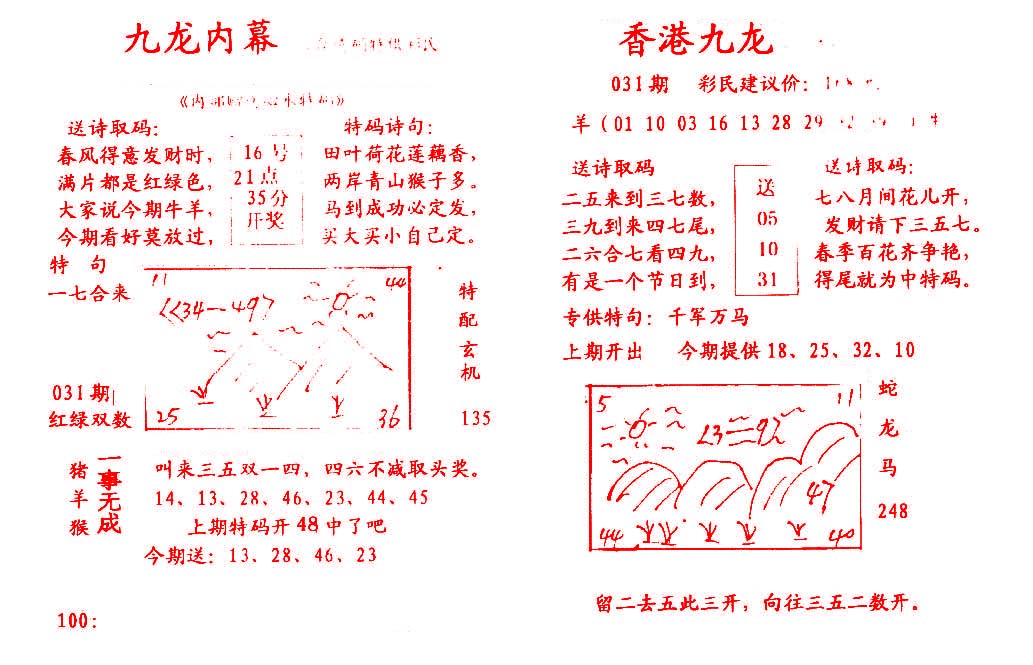 九龙内幕
送诗取码:
春风得意发财时,
满片都是红绿色,
大家说今期牛羊,
今期看好莫放过,
16号
21点
35分
开奖
特码诗句:
田叶荷花莲藕香,
两岸青山猴子多。
马到成功必定发,
买大买小自己定。
特 句
一七合来
031期
红绿双数
11
44
25
36
特配玄机
135
猪羊猴
一事无成
叫来三五双一四, 四六不减取头奖。
14、13、28、46、23、44、45
上期特码开48中了吧
今期送: 13、28、46、23
100:
香港九龙
031期 彩民建议价:
羊 (01 10 03 16 13 28 29
送诗取码
二五来到三七数,
三九到来四七尾,
二六合七看四九,
有是一个节日到,
送
05
10
31
送诗取码:
七八月间花儿开,
发财请下三五七。
春季百花齐争艳,
得尾就为中特码。
专供特句: 千军万马
上期开出 今期提供18、25、32、10
5
11
47
44
40
蛇龙马
248
留二去五此三开, 向往三五二数开。